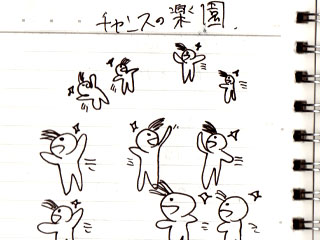 チャンスの楽園